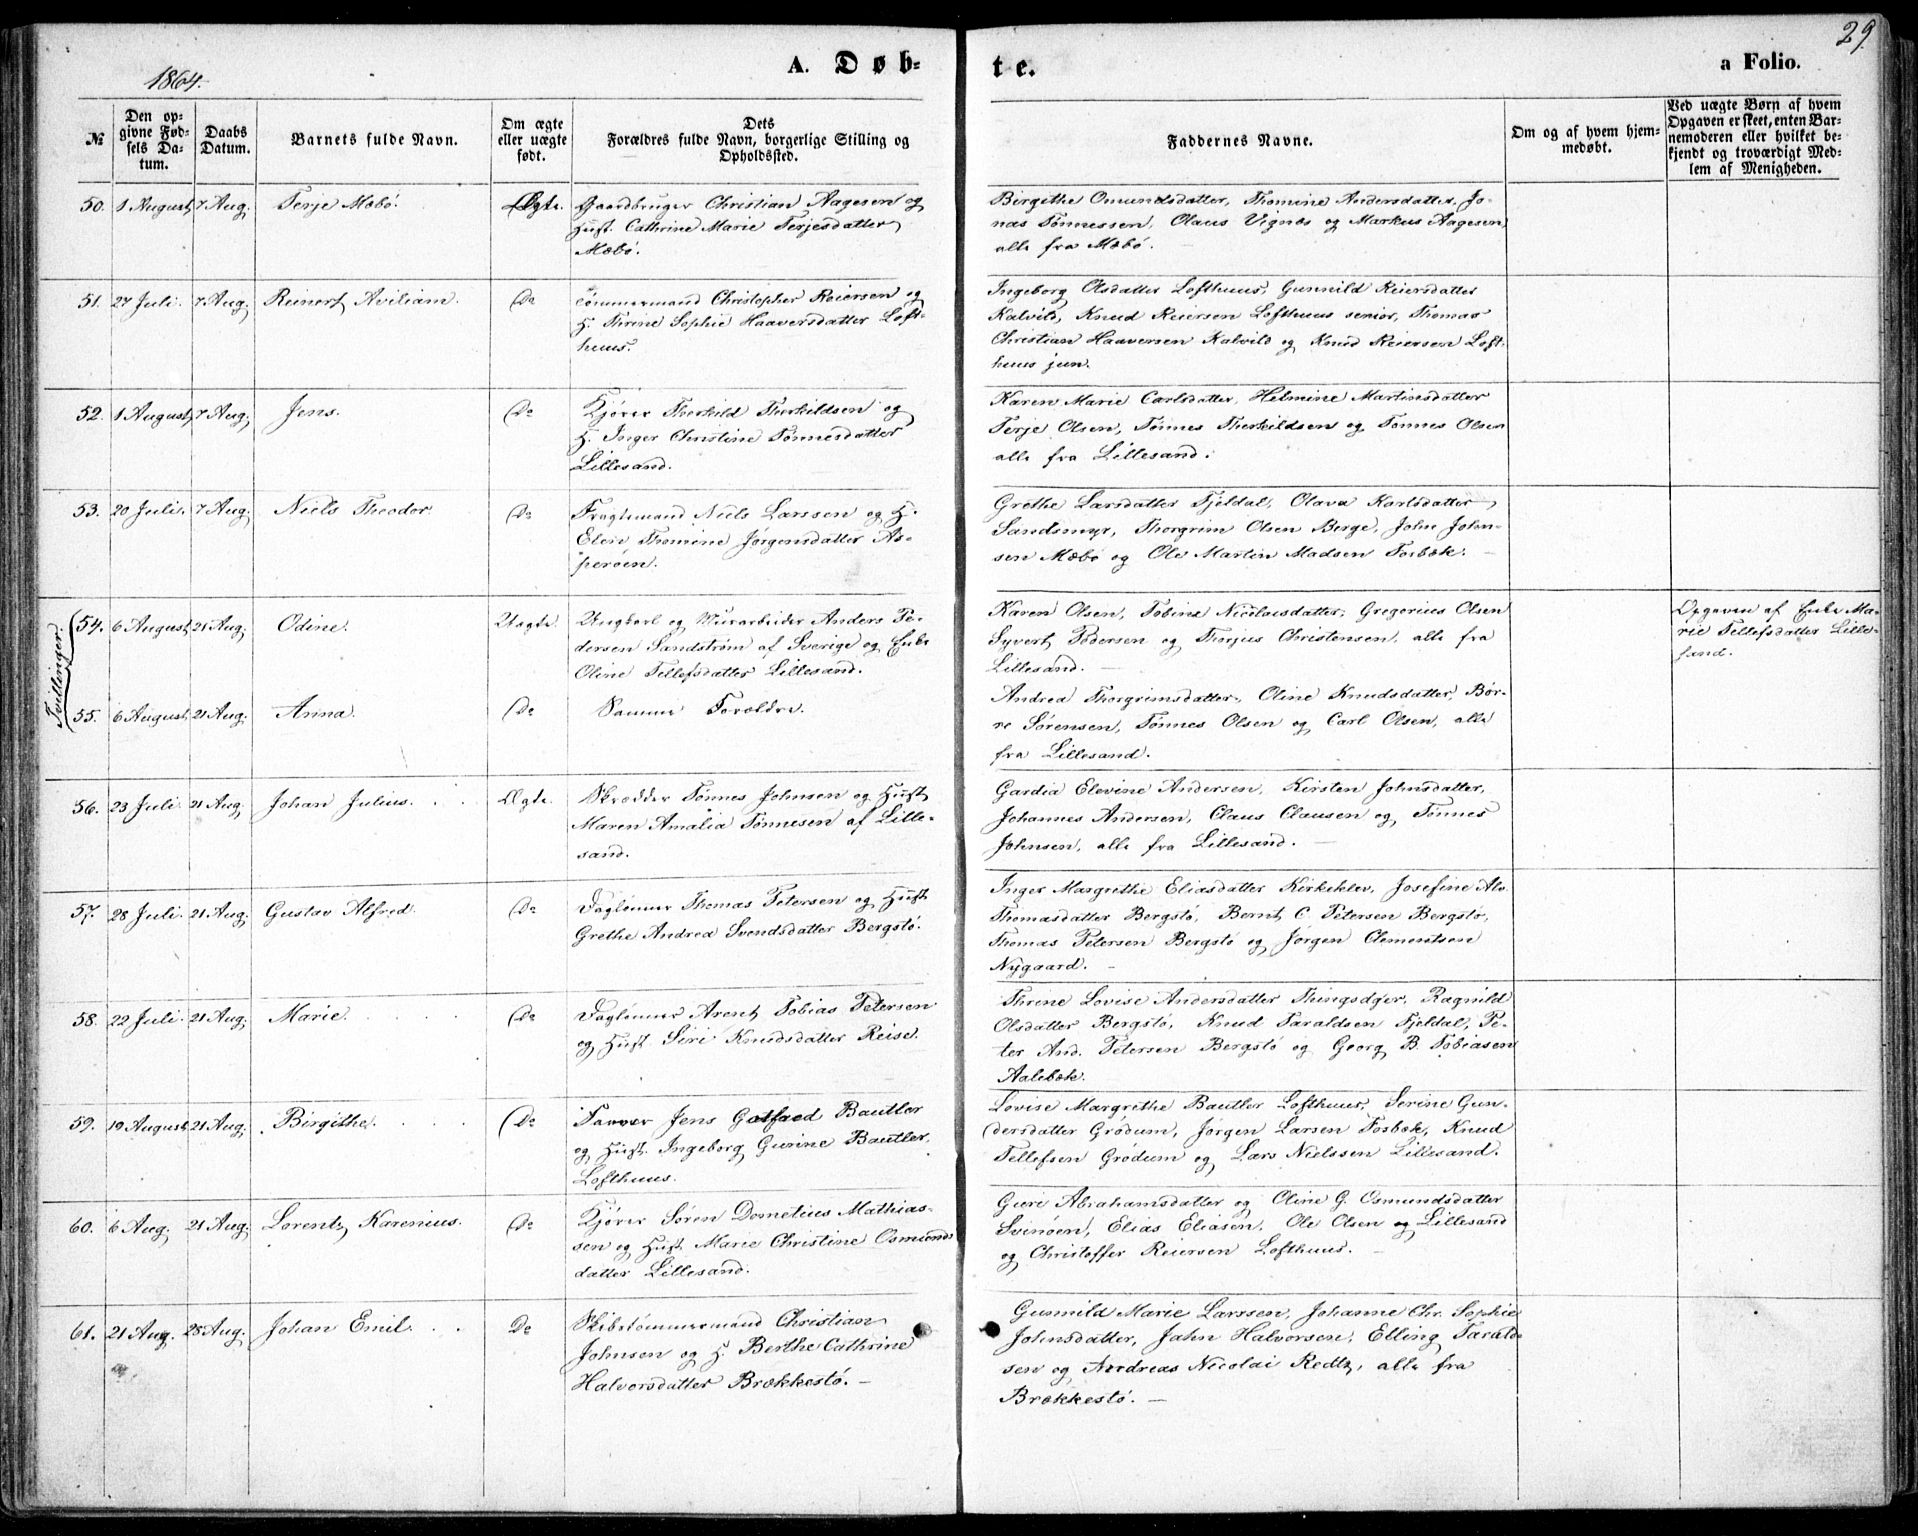 29.
1864.
A. Døb-
te.
a Folio.
№
Den op-
givne Fød-
sels Da-
tum.
Daabs
Datum.
Barnets fulde Navn.
Om ægte
eller uægte
født.
Dets
Forældres fulde Navn, borgerlige Stilling og
Opholdssted.
Faddernes Navne.
Om og af hvem hjem-
medøbt.
Ved uægte Børn af hvem
Opgaven er skeet, enten Bar-
nemoderen eller hvilket be-
kjendt og troværdigt Med-
lem af Menigheden.
50. 1 August 7 Aug. Terje Mæbö. Ægte.
Gaardbruger Christian Aagesen og
Hust. Cathrine Marie Terjesdatter
Mæbö.
Birgithe Omundsdatter, Thomine Andersdatter, Jo-
nas Tönnessen, Olaus Vignes og Markus Aagesen,
alle fra Mæbö. —
51. 27 Juli. 7 Aug. Reinert Aviliam. Do
Tömmermand Christopher Reiersen og
H. Thrine Sophie Haaversdatter Loft-
huus.
Ingeborg Olsdatter Lofthuus, Gunnild Reiersdatter
Kalvild, Knud Reiersen Lofthuus senior, Thomas
Christian Haaversen Kalvild og Knud Reiersen Loft-
huus jun.
52. 1 August 7 Aug. Jens. Do
Kjörer Therkild Therkildsen og
H. Inger Christine Tönnesdatter
Lillesand.
Karen Marie Carlsdatter, Helmine Martinsdatter
Terje Olsen, Tönnes Therkildsen og Tönnes Olsen
alle fra Lillesand.
53. 20 Juli. 7 Aug. Niels Theodor. Do
Fragtemand Niels Larssen og H.
Elevi Thomine Jörgensdatter As-
peröen.
Grethe Larsdatter Fjeldal, Olava Karlsdatter
Sandsmyr, Thorgrim Olsen Berge, John John-
sen Mæbö og Ole Martin Madsen Fosbæk. —
Tvillinger.
54. 6 August 21 Aug. Odine. Uægte.
Ungkarl og Murarbeider Anders Pe-
dersen Sandström af Sverige og Enke
Oline Tellefsdatter Lillesand.
Karen Olsen, Tobine Nicolaisdatter, Gregorius Olsen
Syvert Pedersen og Thorjus Christensen, alle fra
Lillesand. —
Opgaven af Enke Ma-
rie Tellefsdatter Lille-
sand.
55. 6 August 21 Aug. Anna. Do
Samme Forældre.
Andrea Thorgrimsdatter, Oline Knudsdatter, Bör-
re Sörensen, Tönnes Olsen og Carl Olsen, alle
fra Lillesand.
56. 23 Juli. 21 Aug. Johan Julius. Ægte.
Skrædder Tönnes Johnsen og Hust
Maren Amalia Tönnesen af Lille-
sand.
Gardia Elevine Andersen, Kirsten Johnsdatter,
Johannes Andersen, Claus Clausen og Tönnes
Johnsen, alle fra Lillesand. —
57. 28 Juli. 21 Aug. Gustav Alfred. Do
Daglönner Thomas Petersen og Hust
Grethe Andrea Svendsdatter Bergstö.
Inger Margrethe Eliasdatter Kirkeklev, Josefine Als.
Thomasdatter Bergstö, Bernt C. Petersen Bergstö,
Thomas Petersen Bergstö og Jörgen Clementsen
Nygaard. —
58. 22 Juli. 21 Aug. Marie. Do
Daglönner Arent Tobias Petersen
og Hust Siri Knudsdatter Reise.
Thrine Lovise Andersdatter Thingsager, Ragnild
Olsdatter Bergstö, Knud Taraldsen Fjeldal, Pe-
ter And. Petersen Bergstö og Georg B. Tobiasen
Aalebæk.
59. 19 August 21 Aug. Birgithe. Do
Farver Jens Gotfred Bautler
og Hust. Ingeborg Gurine Bautler,
Lofthuus.
Lovise Margrethe Bautler Lofthuus, Serine Gun-
dersdatter Grödum, Jörgen Larsen Fosbæk, Knud
Tellefsen Grödum og Lars Nielssen Lillesand.
60. 6 Aug. 21 Aug. Lorentz Karenius. Do
Kjörer Sören Dometius Mathias-
sen og Hust Marie Christine Osmunds
datter Lillesand.
Guri Abrahamsdatter og Oline G. Osmundsdatter
Svinöen, Elias Eliasen, Ole Olsen og Lillesand
og Christoffer Reiersen Lofthuus. —
61. 21 Aug. 28 Aug. Johan Emil. Do
Skibstömmermand Christian
Johnsen og H. Berthe Cathrine
Halvorsdatter Brækkestö. —
Gunnild Marie Larssen, Johanne Chr. Sophie
Johnsdatter, Jahn Halvorsen, Elling Tarald-
sen og Andreas Nicolai Redtz, alle fra
Brækkestö. —